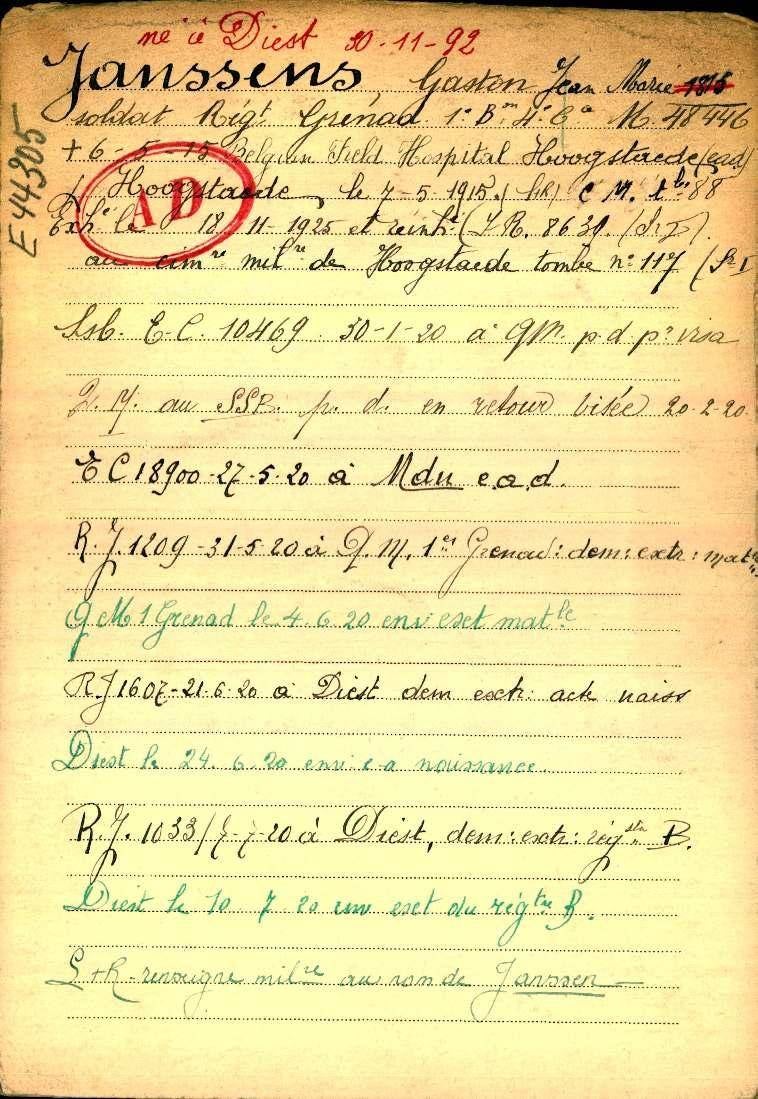 né à Diest 30-11-92
Janssens, Gaston Jean Marie 1815
soldat Rég.t Grénad. 1e Bon 4e Cie M. 48446
+ 6-5-15 Belgian Field Hospital Hoogstaede (ead)
Hoogstaede, le 7-5-1915. C M. 88
AD
E 44305
Exhé le 18-11-1925 et réinhé (I.R. 8630.
au cimre milre de Hoogstaede tombe n° 117
E.C. 10469 30-1-20 à QM. p.d. pr visa
Q.M. au p. d. en retour visée 20-2-20.
E C 18900-27-5-20 à Mdu e.a.d.
R.J. 1209-31-5-20 à Q.M. 1er Grenad: dem: extr: matle
Q M 1 Grenad le 4.6.20 env: exct matle
R J 1607-21-6-20 à Diest dem extr: act naiss
Diest le 24.6.20 env e a naissance.
R.J. 1033/7-7-20 à Diest, dem: extr: régstre P.
Diest le 10 7 20 env exct du régtre P.
renseigné milre au nom de Janssen